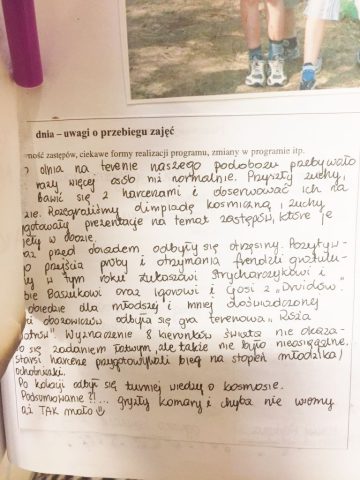 dnia – uwagi o przebiegu zajęć
ność zastępów, ciekawe formy realizacji programu, zmiany w programie itp.
dnia na terenie naszego podobozu przebywało
razy więcej osób niż normalnie. Przyszły zuchy,
bawić się z harcerzami i obserwować ich na
zie. Rozegraliśmy olimpiadę kosmiczną, zuchy
gotowały prezentacje na temat zastępów, które je
ęły w obozie.
az przed obiadem odbyły się otrzęsiny. Pozytyw-
przejścia próby i otrzymania frendzli gratulu-
y w tym roku Łukaszowi Strycharczykowi i
bie Basiukowi oraz Igorowi i Gosi z „Druidów".
obiedzie dla młodszej i mniej doświadczonej
ci obozowiczów odbyła się gra terenowa „Róża
Wyznaczenie 8 kierunków świata nie okaza-
ło się zadaniem łatwym, ale także nie było nieosiągalne.
Starsi harcerze przygotowywali bieg na stopień młodzika/
ochotniczki.
Po kolacji odbył się turniej wiedzy o kosmosie.
Podsumowanie?!... gryzły komary i chyba nie wiemy
aż TAK mało